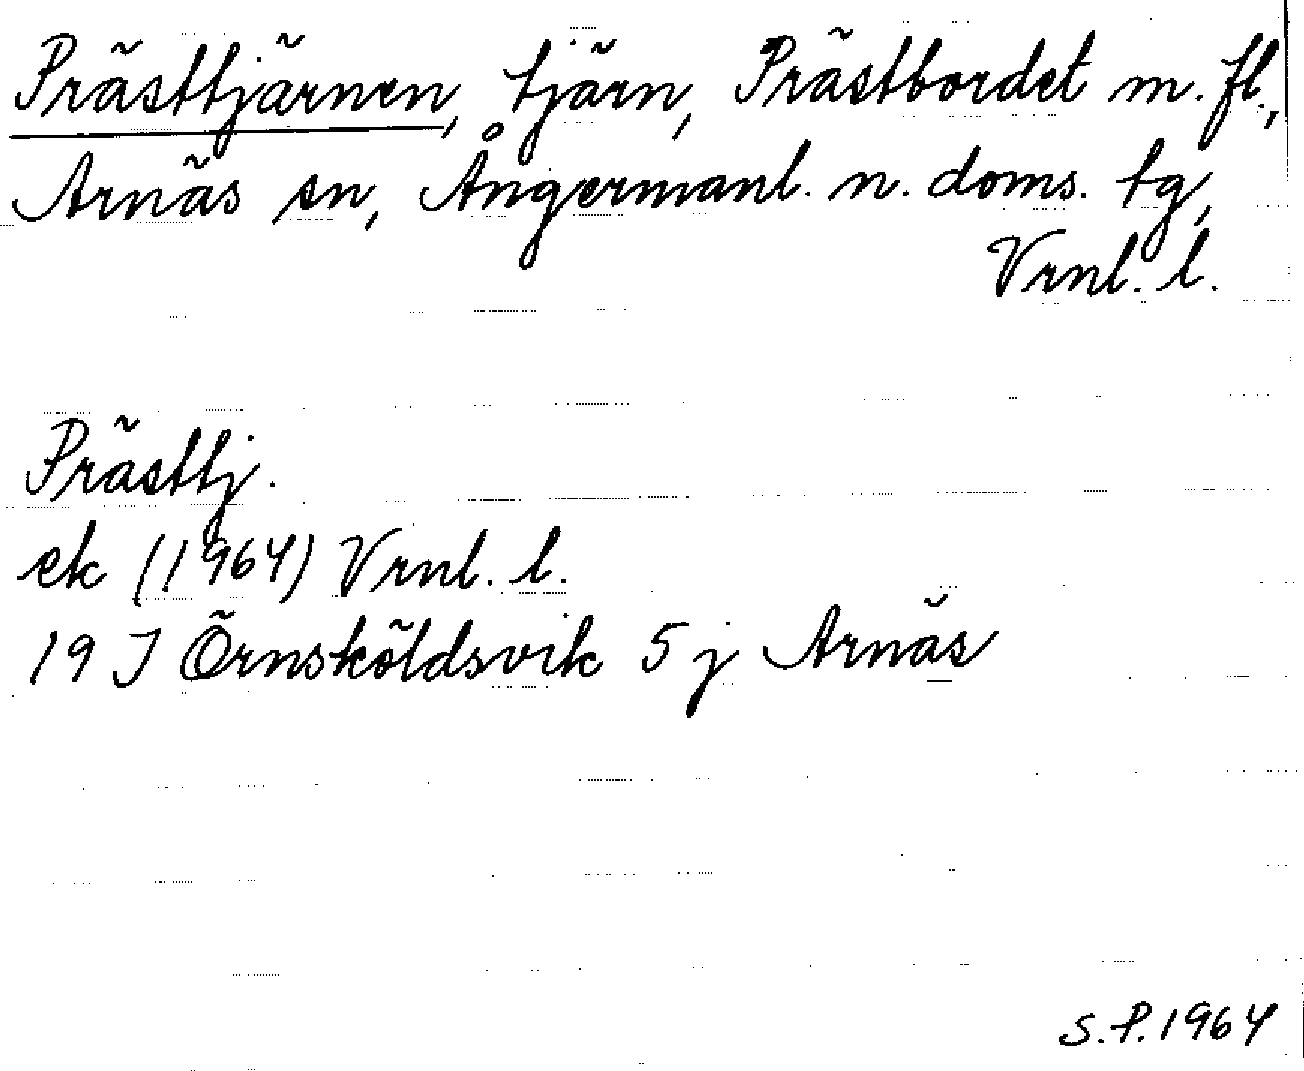 Prästtjärnen, tjärn, Prästbordet m. fl.,
Arnäs sn, Ångermanl. n. doms. tg,
Vrnl. l.
Prästtj.
ek (1964) Vrnl. l.
19 J Örnsköldsvik 5 j Arnäs
S.P. 1964